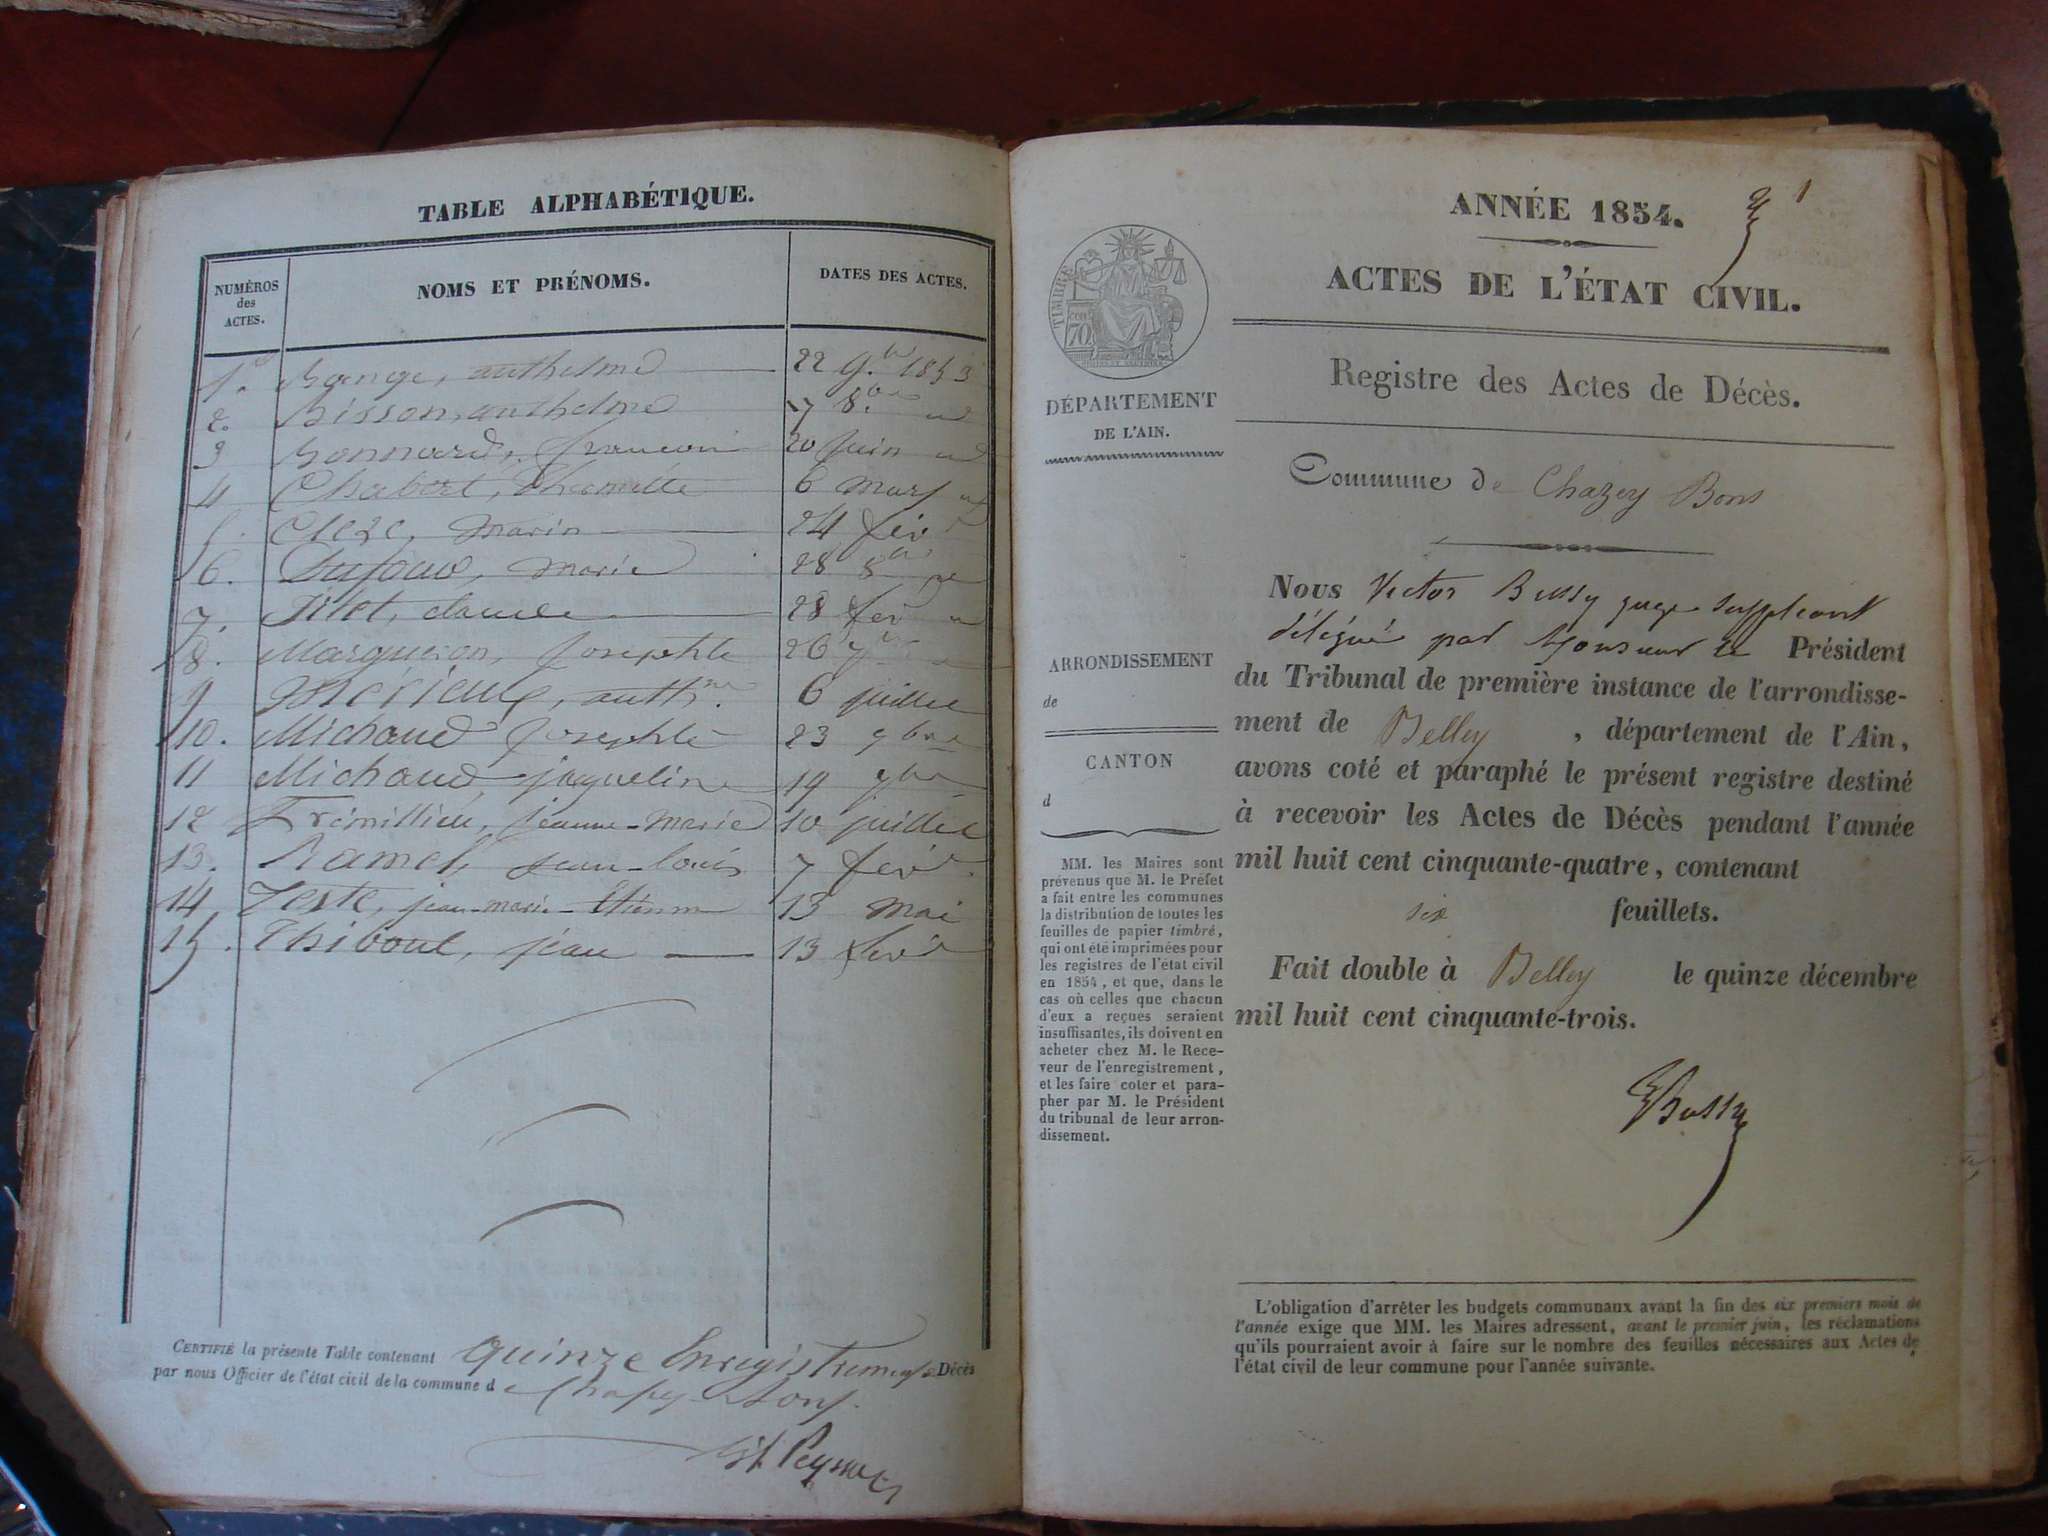 TABLE ALPHABÉTIQUE.
NUMÉROS des ACTES.
NOMS ET PRÉNOMS.
DATES DES ACTES.
1. anthelme 22 9.bre 1853
2. Bisson, anthelme 7 8.bre id
3 Bonnard, francois 20 Juin id
4 Chabert, 6 Mars id
5. Clerc, Marin 24 fév
6. Dufour, Marie 28 8bre
7. 28 fév
8. Margueron, Josephte 26 7bre
9 Mérieux, anth.me 6 juillet
10. Michaud Josephte 23 9bre
11 Michaud, jacqueline 19 9bre
12 Trémillieu, jeanne-marie 10 juillet
13. Ramel, jean-louis 7 févr
14 Teste, jean-marie-Etienne 13 Mai
15. Thiboul, jean 13 févr
CERTIFIÉ la présente Table contenant quinze Enregistremens Décès
par nous Officier de l'état civil de la commune de Chazey-Bons.
ANNÉE 1854.
1
ACTES DE L'ÉTAT CIVIL.
Registre des Actes de Décès.
TIMBRE
70
DÉPARTEMENT
DE L'AIN.
Commune de Chazey Bons
ARRONDISSEMENT
de
CANTON
d
MM. les Maires sont
prévenus que M. le Préfet
a fait entre les communes
la distribution de toutes les
feuilles de papier timbré,
qui ont été imprimées pour
les registres de l'état civil
en 1854, et que, dans le
cas où celles que chacun
d'eux a reçues seraient
insuffisantes, ils doivent en
acheter chez M. le Rece-
veur de l'enregistrement,
et les faire coter et para-
pher par M. le Président
du tribunal de leur arron-
dissement.
Nous Victor Bussy juge suppléant
délégué par Monsieur le Président
du Tribunal de première instance de l'arrondisse-
ment de Belley, département de l'Ain,
avons coté et paraphé le présent registre destiné
à recevoir les Actes de Décès pendant l'année
mil huit cent cinquante-quatre, contenant
six feuillets.
Fait double à Belley le quinze décembre
mil huit cent cinquante-trois.
VBussy
L'obligation d'arrêter les budgets communaux avant la fin des six premiers mois de
l'année exige que MM. les Maires adressent, avant le premier juin, les réclamations
qu'ils pourraient avoir à faire sur le nombre des feuilles nécessaires aux Actes de
l'état civil de leur commune pour l'année suivante.